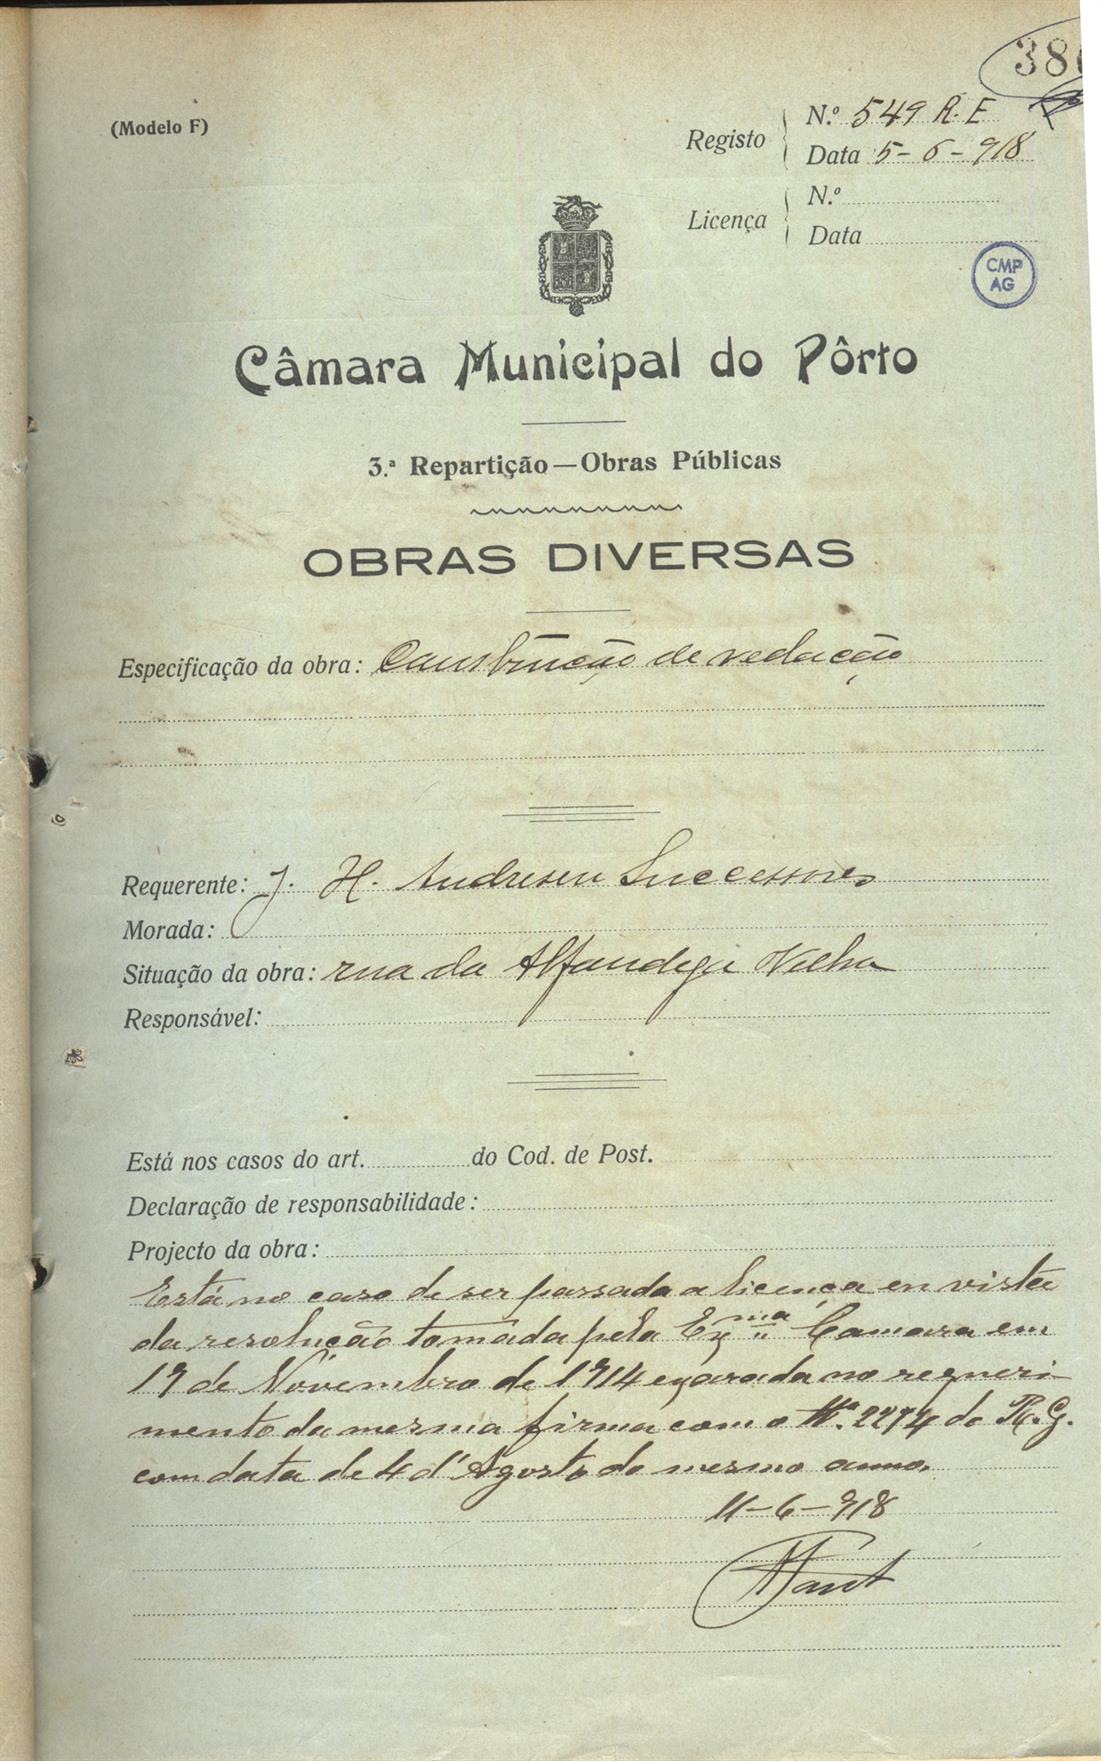 38
(Modelo F)
Registo
N.º 549 R. E
Data 5-6-918
Licença
N.º
Data
CMP
AG
Câmara Municipal do Pôrto
3.ª Repartição — Obras Públicas
OBRAS DIVERSAS
Especificação da obra: Construcção de vedação
Requerente: J. H. Andresen Successores
Morada:
Situação da obra: rua da Alfandega Velha
Responsável:
Está nos casos do art. do Cod. de Post.
Declaração de responsabilidade:
Projecto da obra:
Está no caso de ser passada a licença en vista
da resolução tomada pela Exma Camara em
19 de Novembro de 1914 exarada no requeri-
mento da mesma firma com o Nº. 2274 do R. G.
com data de 4 d'Agosto do mesmo anno.
11-6-918